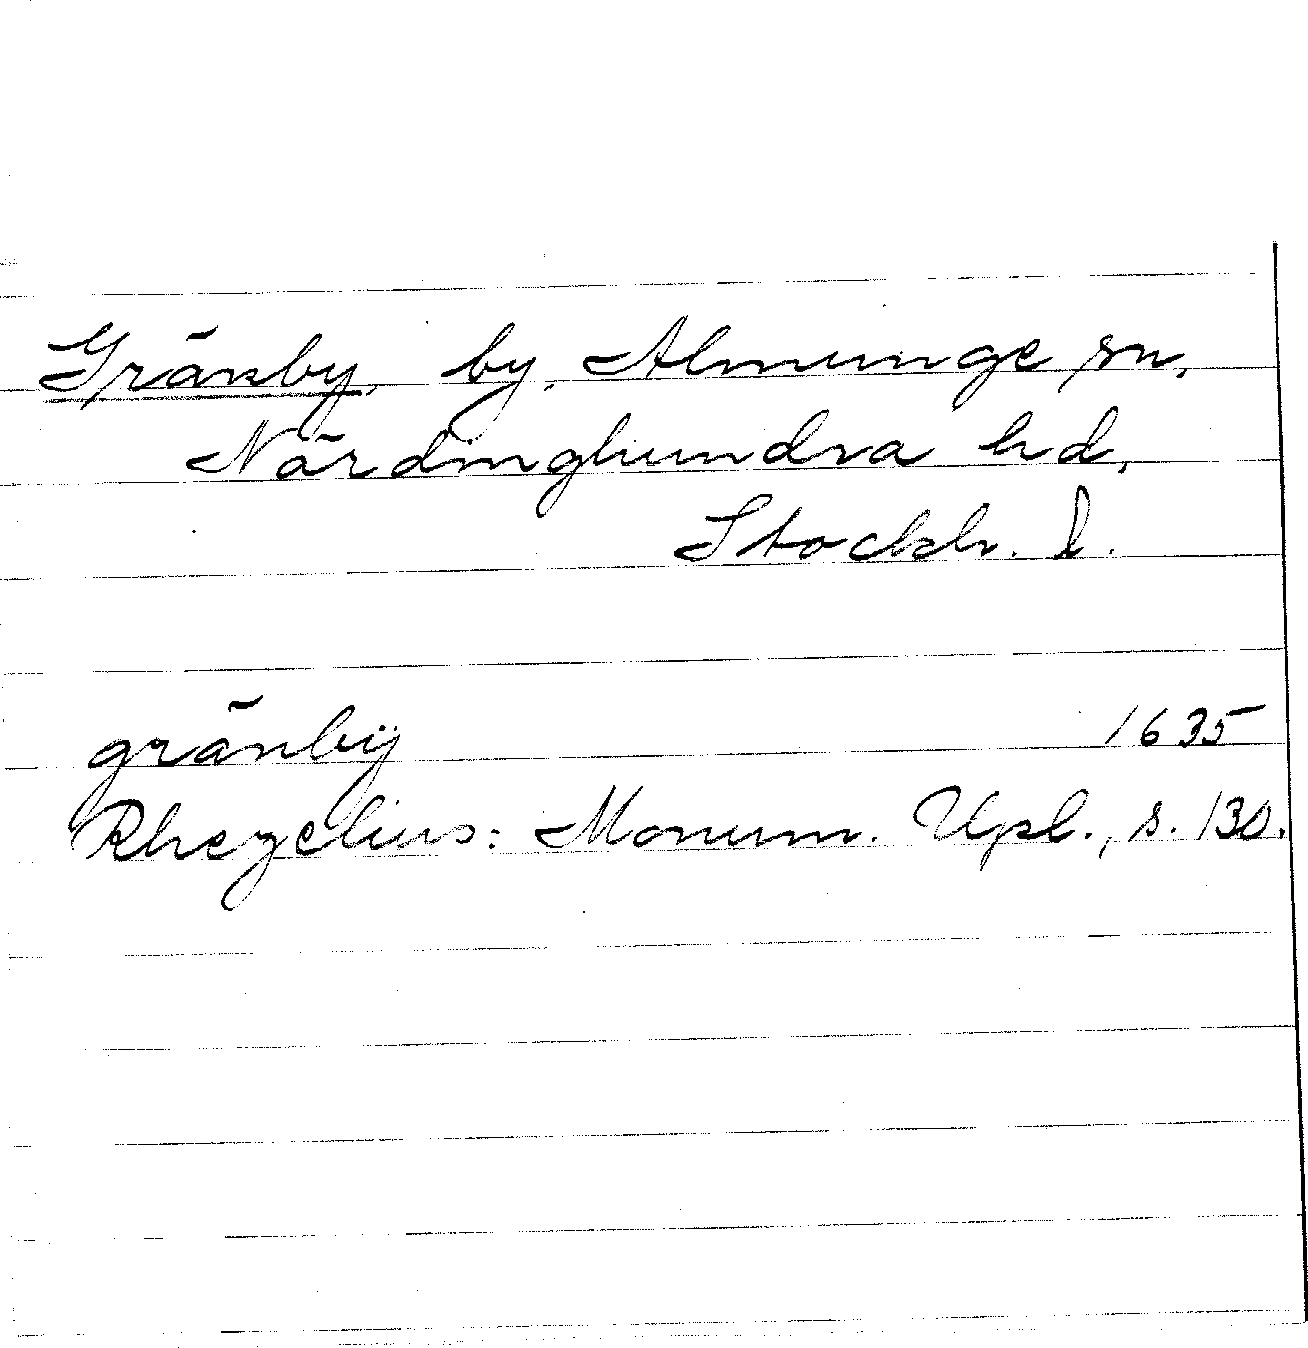 Gränby, by, Almunge sn,
Närdinghundra hd,
Stockh. l.
gränbÿ 1635
Rhezelius: Monum. Upl., s. 130.